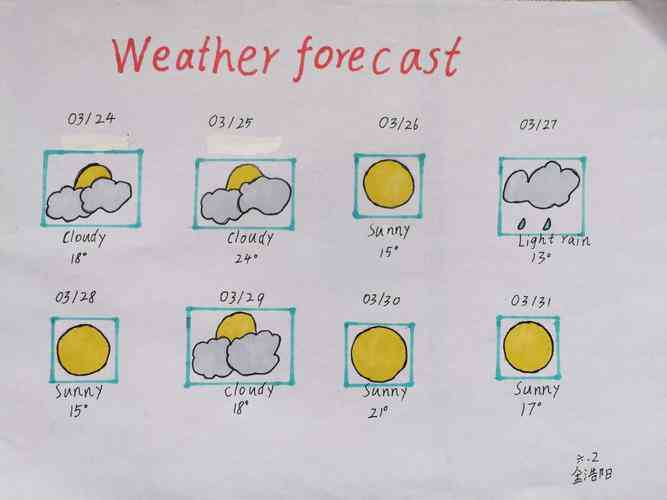 Weather forecast
03/24 03/25 03/26 03/27
Cloudy Cloudy Sunny Light rain
18° 24° 15° 13°
03/28 03/29 03/30 03/31
Sunny Cloudy Sunny Sunny
15° 18° 21° 17°
六.2
金浩阳